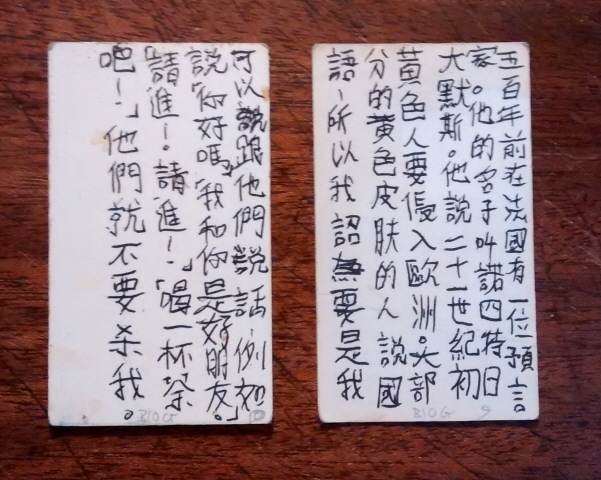 五百年前在法國有一位預言
家。他的名子叫諾四特日
大默斯。他說二十一世紀初
黃色人要侵入歐洲。大部
分的黃色皮膚的人說國
語、所以我認為要是我
BIOG 9
可以跟他們說話、例如
說「你好嗎」「我和你是好朋友。」
「請進！。請進！」「喝一杯茶
吧！」他們就不要杀我。
BIOG 10